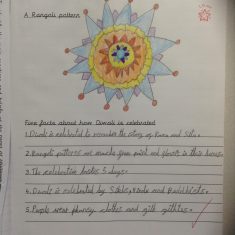 A Rangoli pattern
Five facts about how Diwali is celebrated
1. Diwali is celebrated to remember the story of Rama and Sita.
2. Rangoli patterns are made by paint and in their homes.
3. The celebration lasts 5 days.
4. Diwali is celebrated by Sikhs, Hindu and Buddhists.
5. People wear clothes and gift